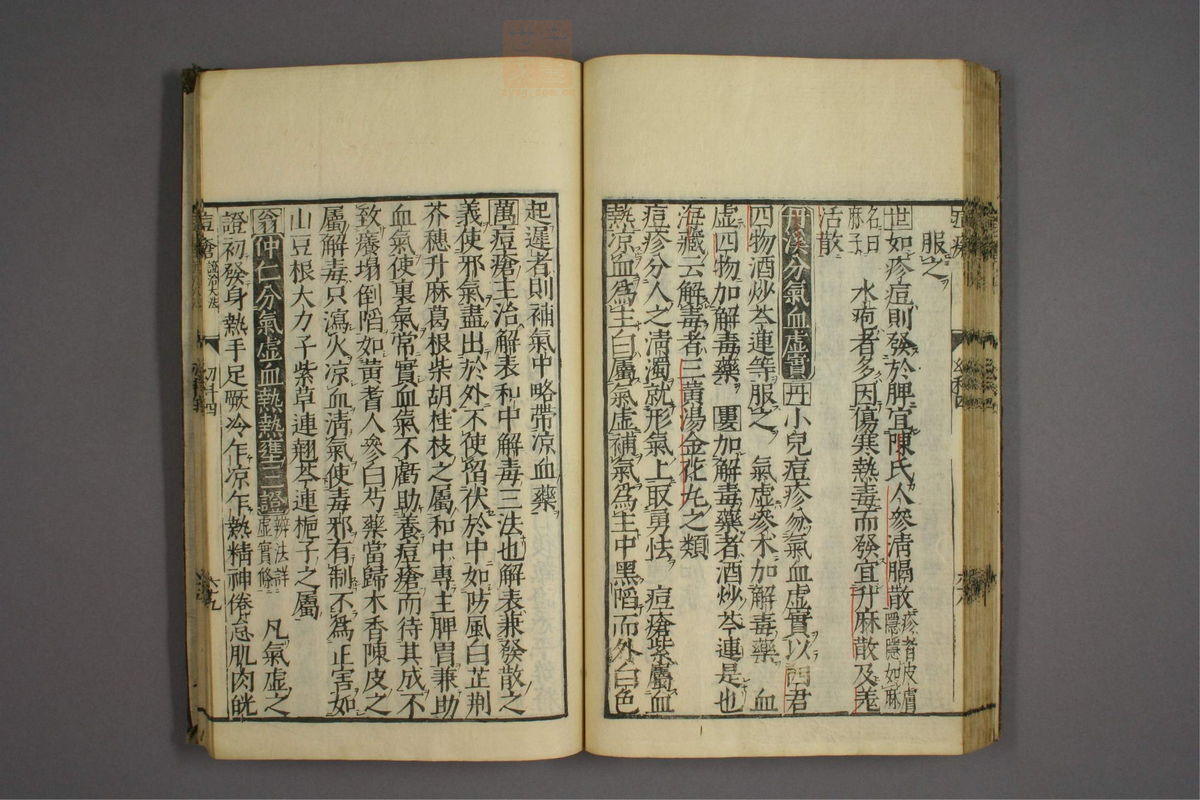 服之
世如疹痘則發於脾宜陳氏人參淸膈散疹者皮膚隱隱如麻
名曰麻子 水疱者多因傷寒熱毒而發宜升麻散及羗
活散
丹溪分氣血虛實 丹小兒痘疹分氣血虛實以四君
四物酒炒芩連等服之 氣虛參朮加解毒藥 血
虛四物加解毒藥 加解毒藥者酒炒芩連是也
海藏云解毒者三黃湯金花丸之類
痘疹分人之淸濁就形氣上取勇怯 痘瘡紫屬血
熱凉血爲主白屬氣虛補氣爲主中黑陷而外白色
起遲者則補氣中略帶凉血藥
萬痘瘡主治解表和中解毒三法也解表兼發散之
義使邪氣盡出於外不使留伏於中如防風白芷荆
芥穗升麻葛根柴胡桂枝之屬和中專主脾胃兼助
血氣使裏氣常實血氣不虧助養痘瘡而待其成不
致癢塌倒陷如黃耆人參白芍藥當歸木香陳皮之
屬解毒只瀉火凉血淸氣使毒邪有制不爲正害如
山豆根大力子紫草連翹芩連梔子之屬
翁仲仁分氣虛血熱熱壅三證辨法詳虛實條 凡氣虛之
證初發身熱手足厥冷乍凉乍熱精神倦怠肌肉㿠
痘瘡